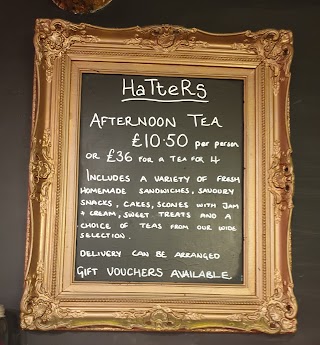 HaTteRs
AFTERNOON TEA
£10.50 per person
OR £36 FOR A TEA FOR 4
INCLUDES A VARIETY OF FRESH
HOMEMADE SANDWICHES, SAVOURY
SNACKS, CAKES, SCONES WITH JAM
+ CREAM, SWEET TREATS AND A
CHOICE OF TEAS FROM OUR WIDE
SELECTION.
DELIVERY CAN BE ARRANGED
GIFT VOUCHERS AVAILABLE